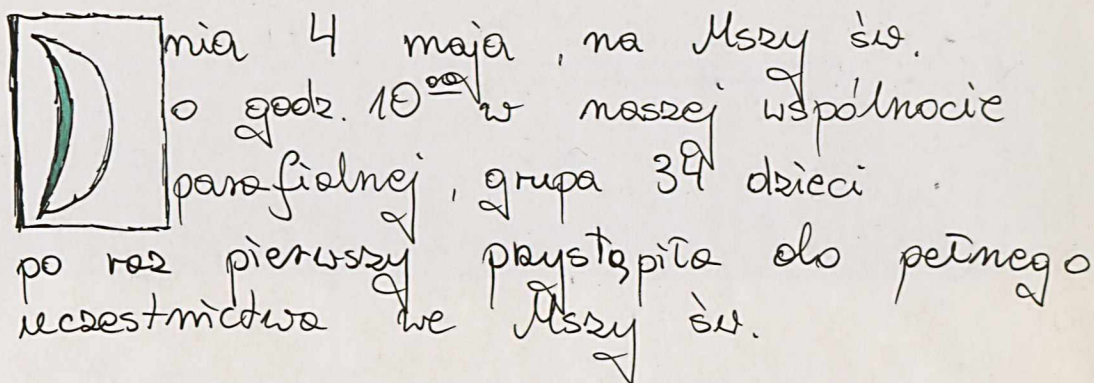 Dnia 4 maja, na Mszy św.
o godz. 10⁰⁰ w naszej wspólnocie
parafialnej, grupa 34 dzieci
po raz pierwszy przystąpiła do pełnego
uczestnictwa we Mszy św.